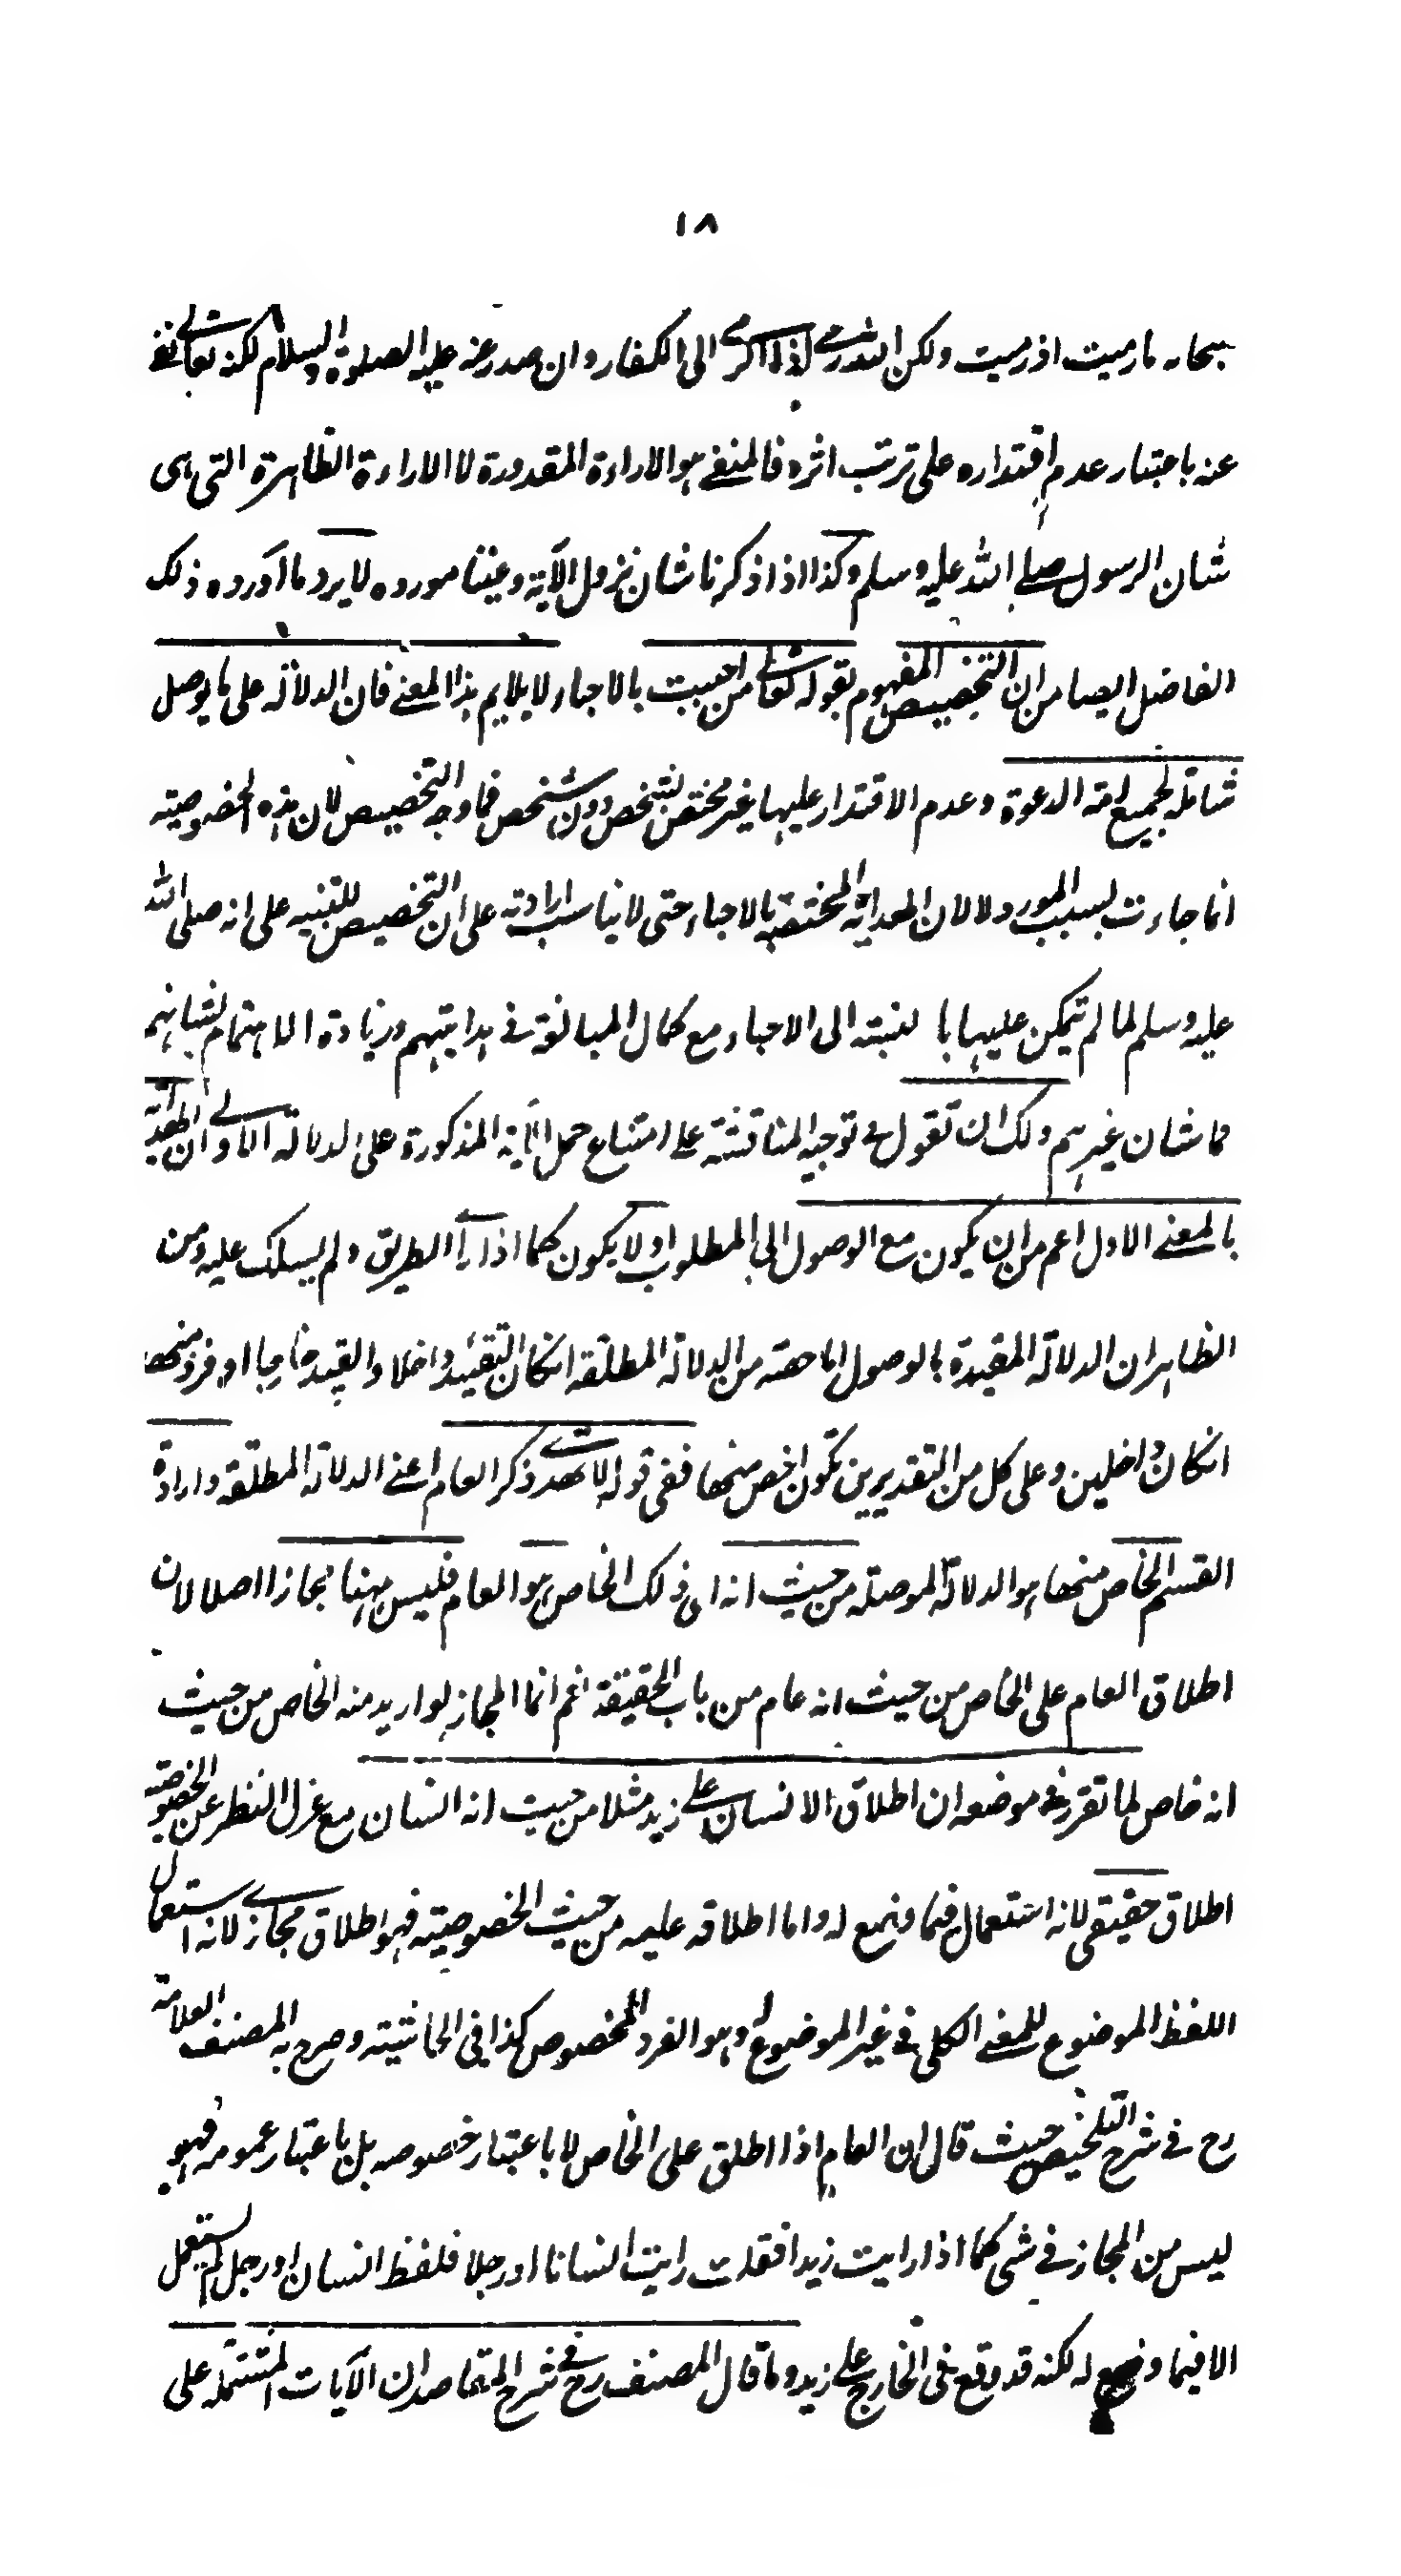 ١٨
سبحانه ما رميت اذ رميت ولكن الله رمى اذ الرمي الى الكفار وان صدر عنه عليه الصلوة والسلام لكنه تعالى نفى
عنه باعتبار عدم اقتداره على ترتب اثره فالمنفي هو الاراءة المقدورة لا الاراءة الظاهرة التي هى
شان الرسول صلى الله عليه وسلم وكذا اذا ذكرنا شان نزول الآية وعينا مورده لا يرد ما اورده ذلك
الفاضل ايصا من ان التخصيص المفهوم بقوله تعالى من احببت بالاحباء لا يلايم هذا المعنى فان الدلالة على ما يوصل
شاملة لجميع امة الدعوة وعدم الاقتدار عليها غير مختص بشخص دون شخص فما وجه التخصيص لان هذه الخصوصية
انما جاءت بسبب المورد لا لان الهداية المختصة بالاحباء حتى لا يناسب ارادته على ان التخصيص للتنبيه على انه صلى الله
عليه وسلم لما لم يتمكن عليها بالنسبته الى الاحباء مع كمال المبالغة في هدايتهم وزيادة الاهتمام بشانهم
فما شان غيرهم ولك ان تقول فى توجيه المناقشة على امتناع حمل الآية المذكورة على الدلالة الاولى ان الهداية
بالمعنى الاول اعم من ان يكون مع الوصول الى المطلوب او لا يكون كما اذا راى الطريق ولم يسلك عليه ومن
الظاهر ان الدلالة المقيدة بالوصول اما حصة من الدلالة المطلقة انكان التقييد داخلا والقيد خارجا او فرد منها
انكانا داخلين وعلى كل من التقديرين تكون اخص منها ففي قوله لا تهدى ذكر العام اعني الدلالة المطلقة وارادة
القسم الخاص منها هو الدلالة الموصلة من حيث انه اى ذلك الخاص هو العام فليس ههنا مجازا اصلا لان
اطلاق العام على الخاص من حيث انه عام من باب الحقيقة نعم انما المجاز لو اريد منه الخاص من حيث
انه خاص لما تقرر في موضعه ان اطلاق الانسان على زيد مثلا من حيث انه انسان مع عزل النظر عن الخصوصية
اطلاق حقيقي لانه استعمال فيما وضع له واما اطلاقه عليه من حيث الخصوصية فهو اطلاق مجازى لانه استعمال
اللفظ الموضوع للمعنى الكلي في غير الموضوع له وهو الفرد المخصوص كذا في الحاشية وصرح به المصنف العلامة
رح في شرح التلخيص حيث قال ان العام اذا اطلق على الخاص لا باعتبار خصوصه بل باعتبار عمومه فهو
ليس من المجاز في شى كما اذا رايت زيدا فقلت رايت انسانا او رجلا فلفظ انسان او رجل لم يستعمل
الا فيما وضع له لكنه قد وقع في الخارج على زيد وما قال المصنف رح في شرح المقاصد ان الآيات المشتملة على